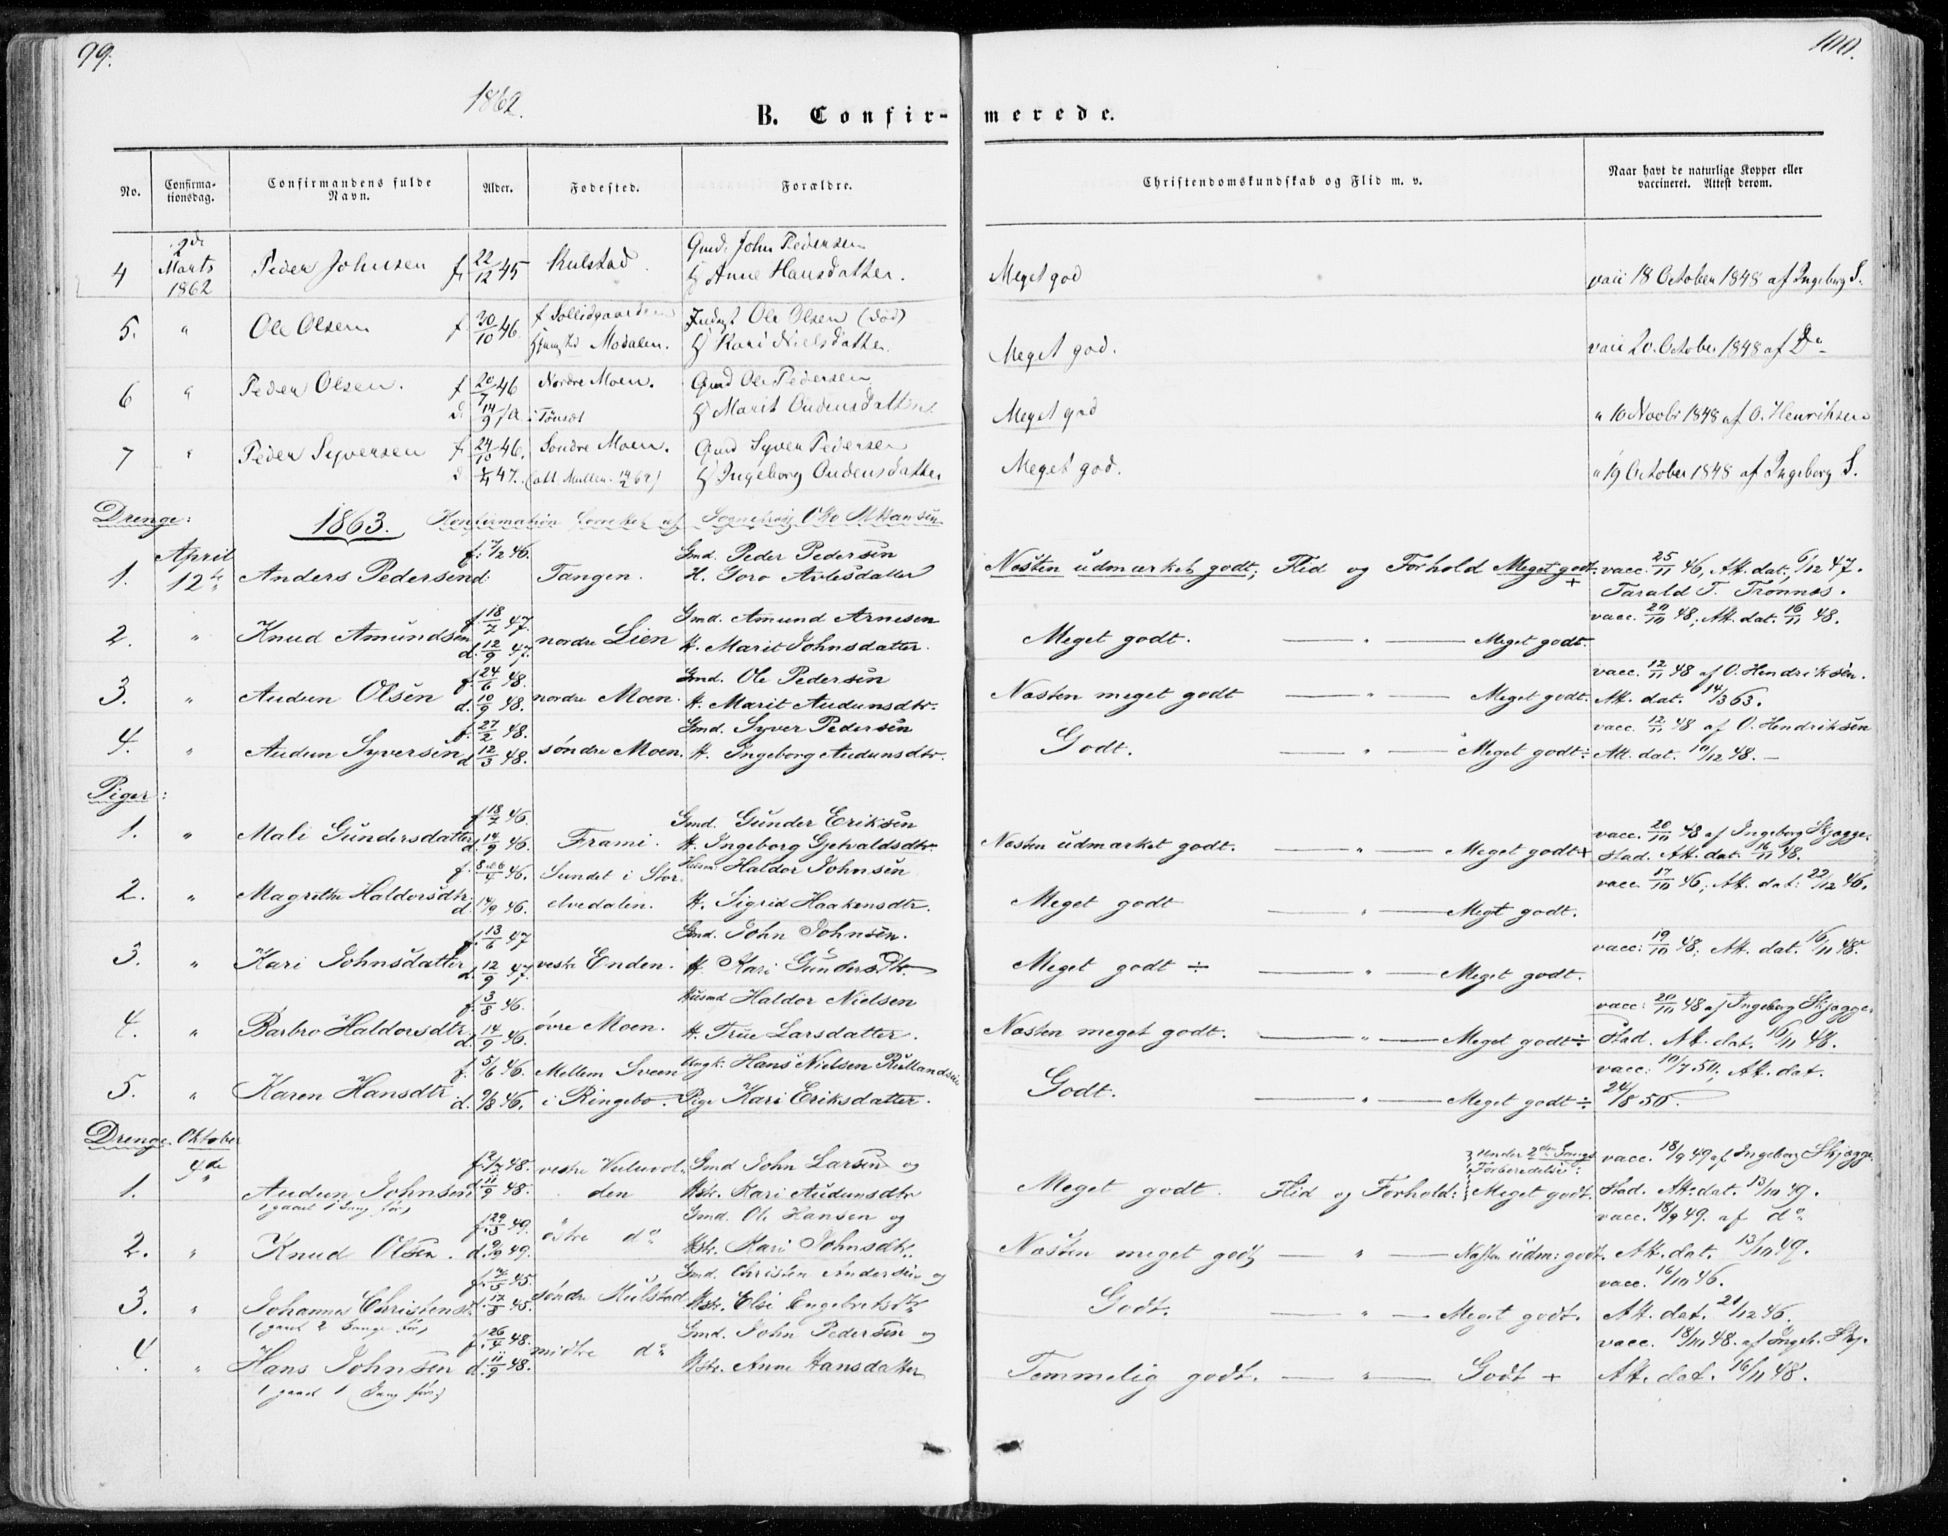 99.
100.
1862.
B. Confir-
merede.
No.
Confirma-
tionsdag.
Confirmandens fulde
Navn.
Alder.
Fødested.
Forældre.
Christendomskundskab og Flid m. v.
Naar havt de naturlige Kopper eller
vaccineret. Attest derom.
4 2de Marts 1862 Peder Johnsen f 22/12 45 Kulstad. Gmd. John Pedersen
H Anne Hansdatter. Meget god vacc 18 October 1848 af Ingeborg S.
5. " Ole Olsen f 30/10 46. Ole Olsen (død)
Modalen. H Kari Nielsdatter. Meget god. vacc 20. October 1848 af Do
6 " Peder Olsen. f 20/7 46 Nordre Moen. Gmd Ole Pedersen
d 14/9 i Tönset H Marit Oudensdatter. Meget god " 10 Novbr 1848 af O. Henriksen
7 " Peder Syversen f 24/10 46. Sondre Moen. Gmd Syver Pedersen
d 1/1 47. H Ingeborg Oudensdatter Meget god. " 19 October 1848 af Ingeborg S.
Drenge: 1863. Konfirmation af Sogneprest Otto M Hansen
1. April 12te Anders Pedersen f. 7/2 46. d. Tangen. Gmd. Peder Pedersen
H. Goro Avlesdatter Næsten udmærket godt; Flid og Forhold Meget godt. + vacc. 25/11 46, Att. dat. 6/12 47.
Tarald T. Trønnæs.
2. " Knud Amundsen f. 18/7 47. d. 12/9 47. nordre Lien Gmd. Amund Arnesen
H. Marit Johnsdatter. Meget godt. — " — Meget godt. vacc. 20/10 48; Att. dat. 16/11 48.
3. " Audun Olsen f. 24/6 48. d. 10/9 48. nordre Moen. Gmd. Ole Pedersen
H. Marit Audunsdtr. Næsten meget godt — " — Meget godt. vacc. 12/11 48 af O. Hendriksen.
Att. dat. 14/3 63.
4. " Audun Syversen f. 27/2 48. d. 12/3 48. søndre Moen. Gmd. Syver Pedersen
H. Ingeborg Audunsdtr. Godt. — " — Meget godt ÷ vacc. 12/11 48 af O. Hendriksen
Att. dat. 10/12 48. —
Piger:
1. " Mali Gundersdatter f. 18/7 46. d. 14/9 46. Frami. Gmd. Gunder Eriksen
H. Ingeborg Gjetvaldsdtr. Næsten udmærket godt. — " — Meget godt + vacc. 20/10 48 af Ingeborg Skjægge-
stad. Att. dat. 16/11 48.
2. " Magrethe Haldorsdtr f. 8/4 46. d. 14/9 46. Sundet i Stor-
elvedalen. Husmd Haldor Johnsen
H. Sigrid Haakensdtr. Meget godt — " — Megt godt. vacc. 17/10 46; Att. dat: 22/12 46.
3. " Kari Johnsdatter f. 13/6 47 d. 12/9 47. vestre Enden. Gmd. John Johnsen.
H. Kari Gundersdtr Meget godt ÷ — " — Meget godt. vacc: 19/10 48; Att. dat. 16/11 48.
4. " Barbro Haldorsdtr f. 3/8 46. d. 14/9 46. øvre Moen. Husmd Haldor Nielsen
H. True Larsdatter. Næsten meget godt. — " — Meget godt ÷ vacc: 20/10 48 af Ingeborg Skjægge-
stad. Att. dat. 16/11 48.
5. " Karen Hansdtr f. 5/6 46. d. 9/8 46. Mellem Sveen
i Ringebo. Ungk. Hans Nielsen Rullandseie
Pige Kari Eriksdatter. Godt. — " — Meget godt ÷ vacc: 10/7 50; Att. dat.
24/8 50.
Drenge. Oktober
1. 4de Audun Johnsen f. 2/7 48. d. 11/9 48. vestre Vuluvol-
den Gmd John Larsen og
Kstr. Kari Audunsdtr Meget godt. Flid og Forhold: Under 2den Gangs
Forberedelse: Meget godt. vacc. 18/9 49 af Ingeborg Skjægge-
stad. Att. dat. 13/10 49.
( gaaet 1 Gang før)
2. " Knud Olsen. f. 29/5 49. d. 9/9 49. østre do Gmd. Ole Hansen og
Kstr. Kari Johnsdtr. Næsten meget godt — " — Næsten udm: godt. vacc. 18/9 49. af do
Att. dat. 13/10 49.
3. " Johannes Christenst. f. 7/5 45. d. 17/8 45. søndre Kulstad Gmd. Christen Andersen og
Kstr. Elsi Engebretsdtr Godt. — " — Meget godt. vacc. 16/10 46.
Att. dat. 21/12 46.
(gaaet 2 Gange før)
4. " Hans Johnsen f. 26/4 48. d. 11/9 48. midtre do Gmd. John Pedersen og
Kstr. Anne Hansdatter Temmelig godt. — " — Godt + vacc. 18/10 48. af Ingeb. Skj.
Att. dat. 16/11 48.
( gaaet 1 Gang før)